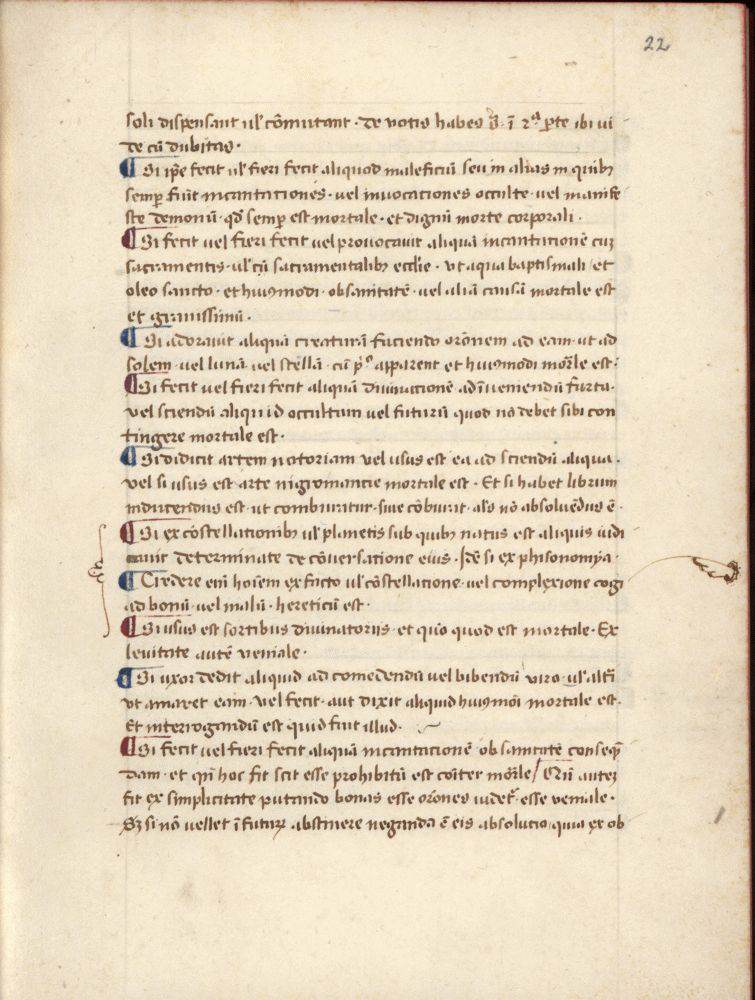 22
soli dispensant ul' cōmutant · de votis habes s̄ · ī 2ª ꝑte ibi ui
de cū dubitas ·
¶ Si ip̄e fecit ul' fieri fecit aliquod maleficiū seu in alias in quibꝫ
semꝑ fiūt incantationes · uel inuocationes occulte · uel manife
ste demonū · qđ semꝑ est mortale · et dignū morte corporali ·
¶ Si fecit uel fieri fecit uel prouocauit aliquā incantationē cuꝫ
sacramentis · ul' cū sacramentalibꝫ eccl'ie · vt aqua baptismali et
oleo sancto · et huiusmodi · ob sanitatē · uel aliā causā mortale est
et grauissimū ·
¶ Si adorauit aliquā creaturā faciendo orōnem ad eam · ut ad
solem · uel lunā · uel stellā · cū pº apparent et huiusmodi mōrle est :
¶ Si fecit uel fieri fecit aliquā diuinationē ad īueniendū furta ·
vel sciendū aliquid occultum uel futurū quod nō debet sibi con
tingere mortale est ·
¶ Si didicit artem notoriam vel usus est ea ad sciendū aliqua ·
vel si usus est arte nigromancie mortale est · Et si habet librum
inducendus est · ut comburatur · siue cōburat · al's nō absoluēdus ē ·
¶ Si ex cōstellationibꝫ ul' planetis sub quibꝫ natus est aliquis iudi
cauit determinate de cōuersatione eius · Idē si ex phisonomya ·
¶ Credere enī hoīem ex facto ul' cōstellatione · uel complexione cogi
ad bonū · uel malū · hereticū est ·
¶ Si usus est sortibus diuinatoriis · et quō quod est mortale · Ex
leuitate autē veniale ·
¶ Si uxor dedit aliquid ad comedendū uel bibendū viro · ul' alt'i
vt amaret eam · vel fecit · aut dixit aliquid huiusmōi mortale est ·
Et interrogandū est quid fuit illud ·
¶ Si fecit uel fieri fecit aliquā incantationē ob sanitatē conseqn̄
dam · et qn̄ hoc fit scit esse prohibitū est cōiter mōrle / Qn̄ auteꝫ
fit ex simplicitate putando bonas esse orōnes uidet' esse veniale ·
Sꝫ si nō uellet ī futuꝝ abstinere neganda ē eis absolutio · quia ex ob